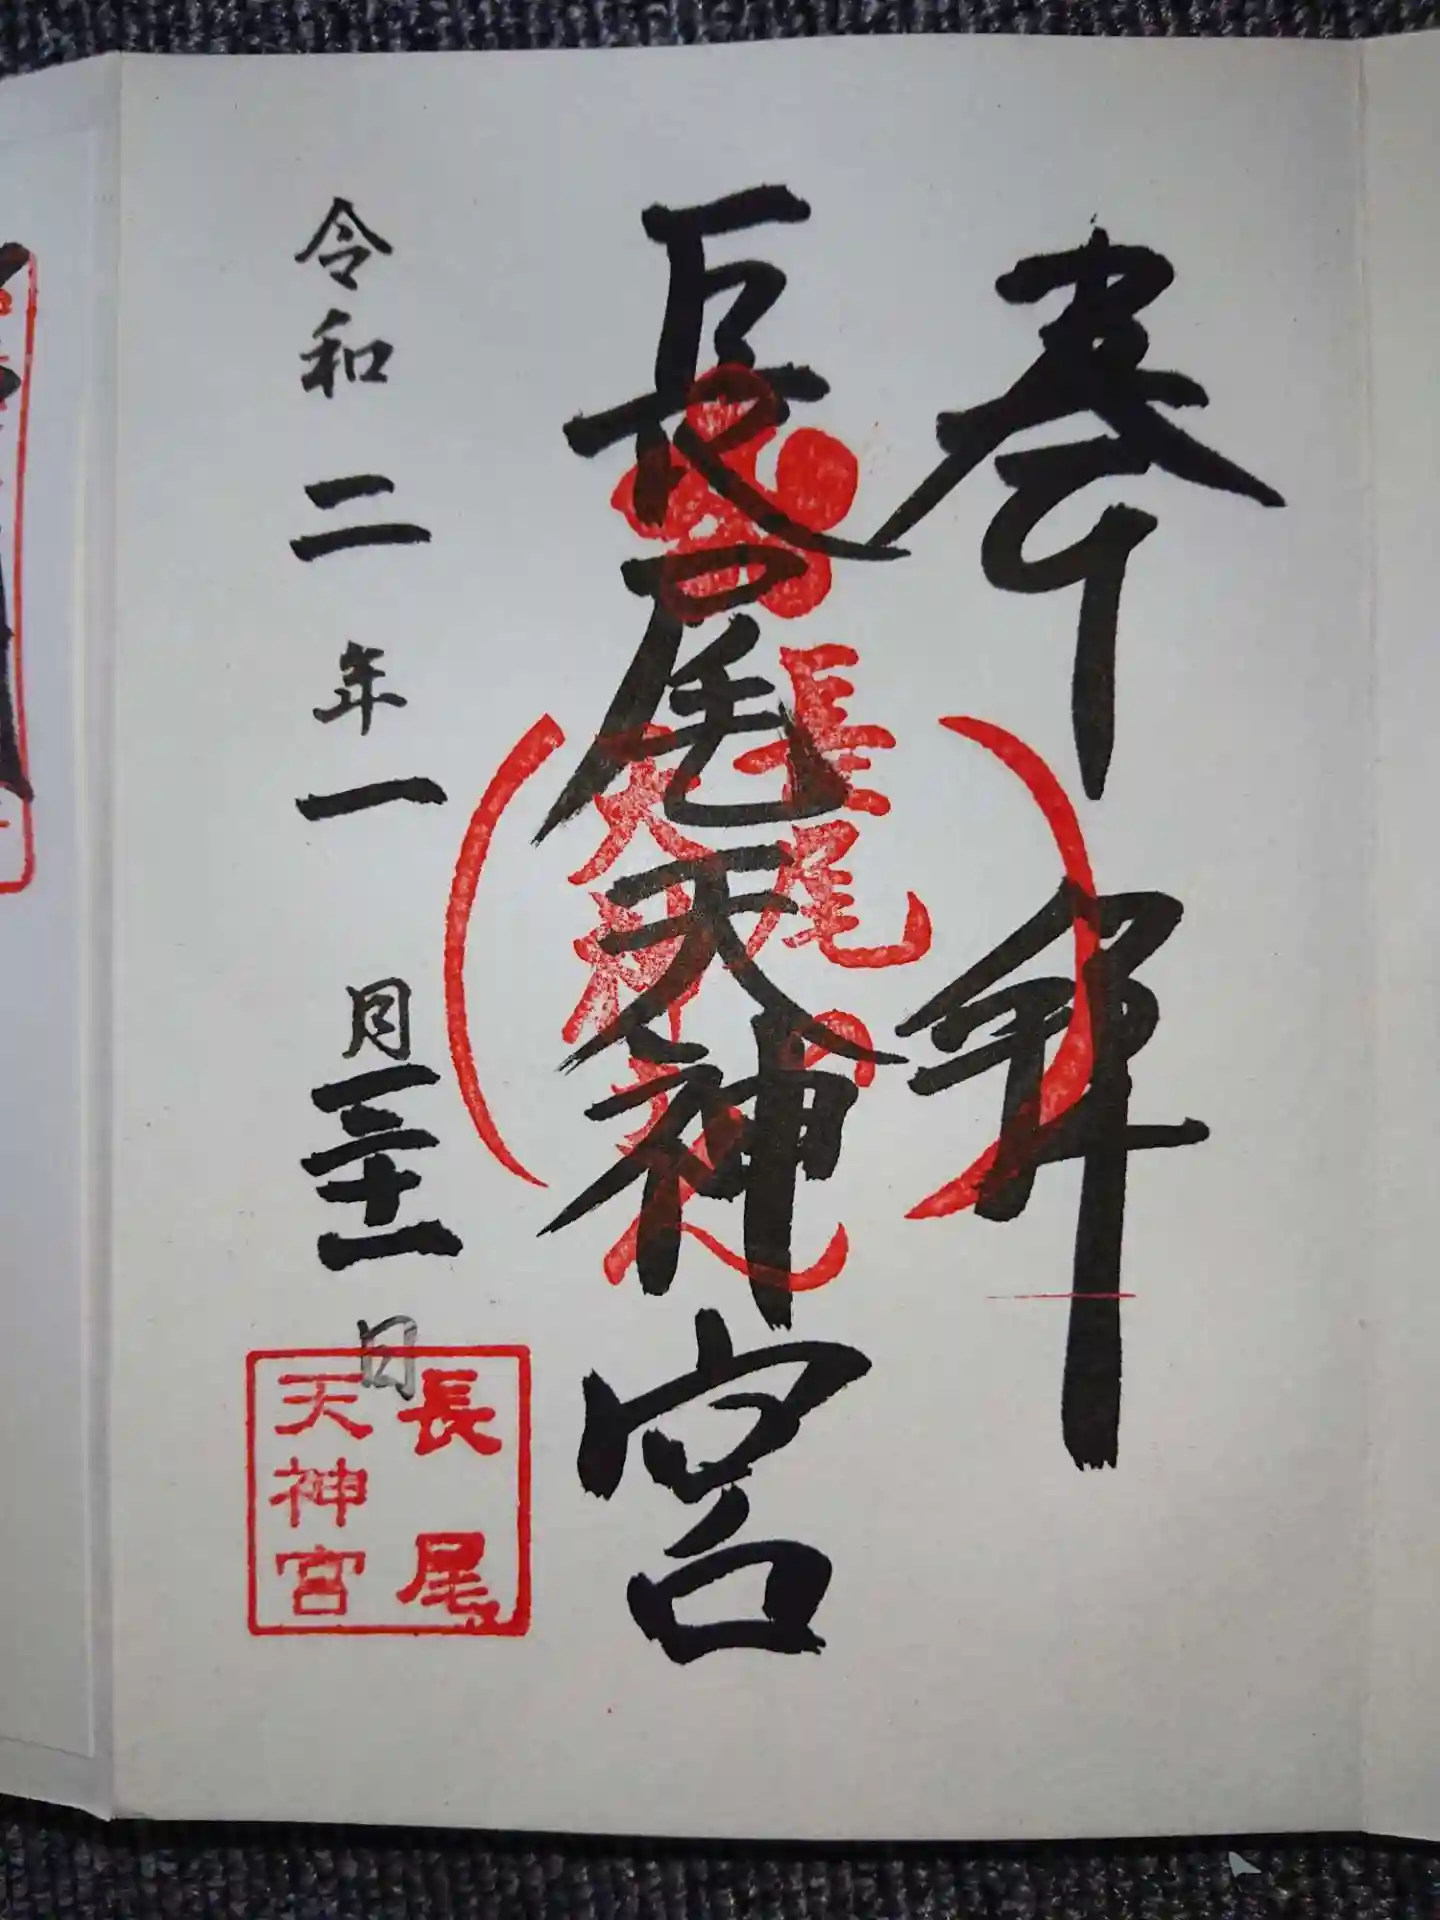 奉拝
長尾天神宮
長尾
天神
令和二年一月三十一日
長尾
天神宮